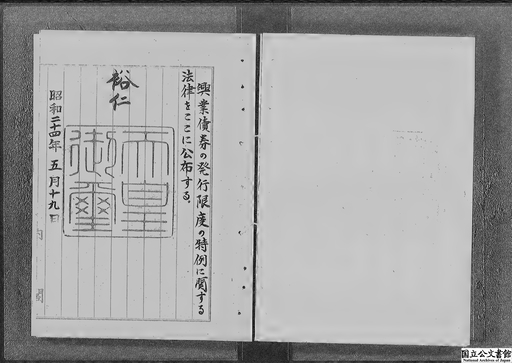 興業債券の発行限度の特例に関する
法律をここに公布する。
裕仁
天皇
御璽
昭和二十四年五月十九日
国立公文書館
National Archives of Japan